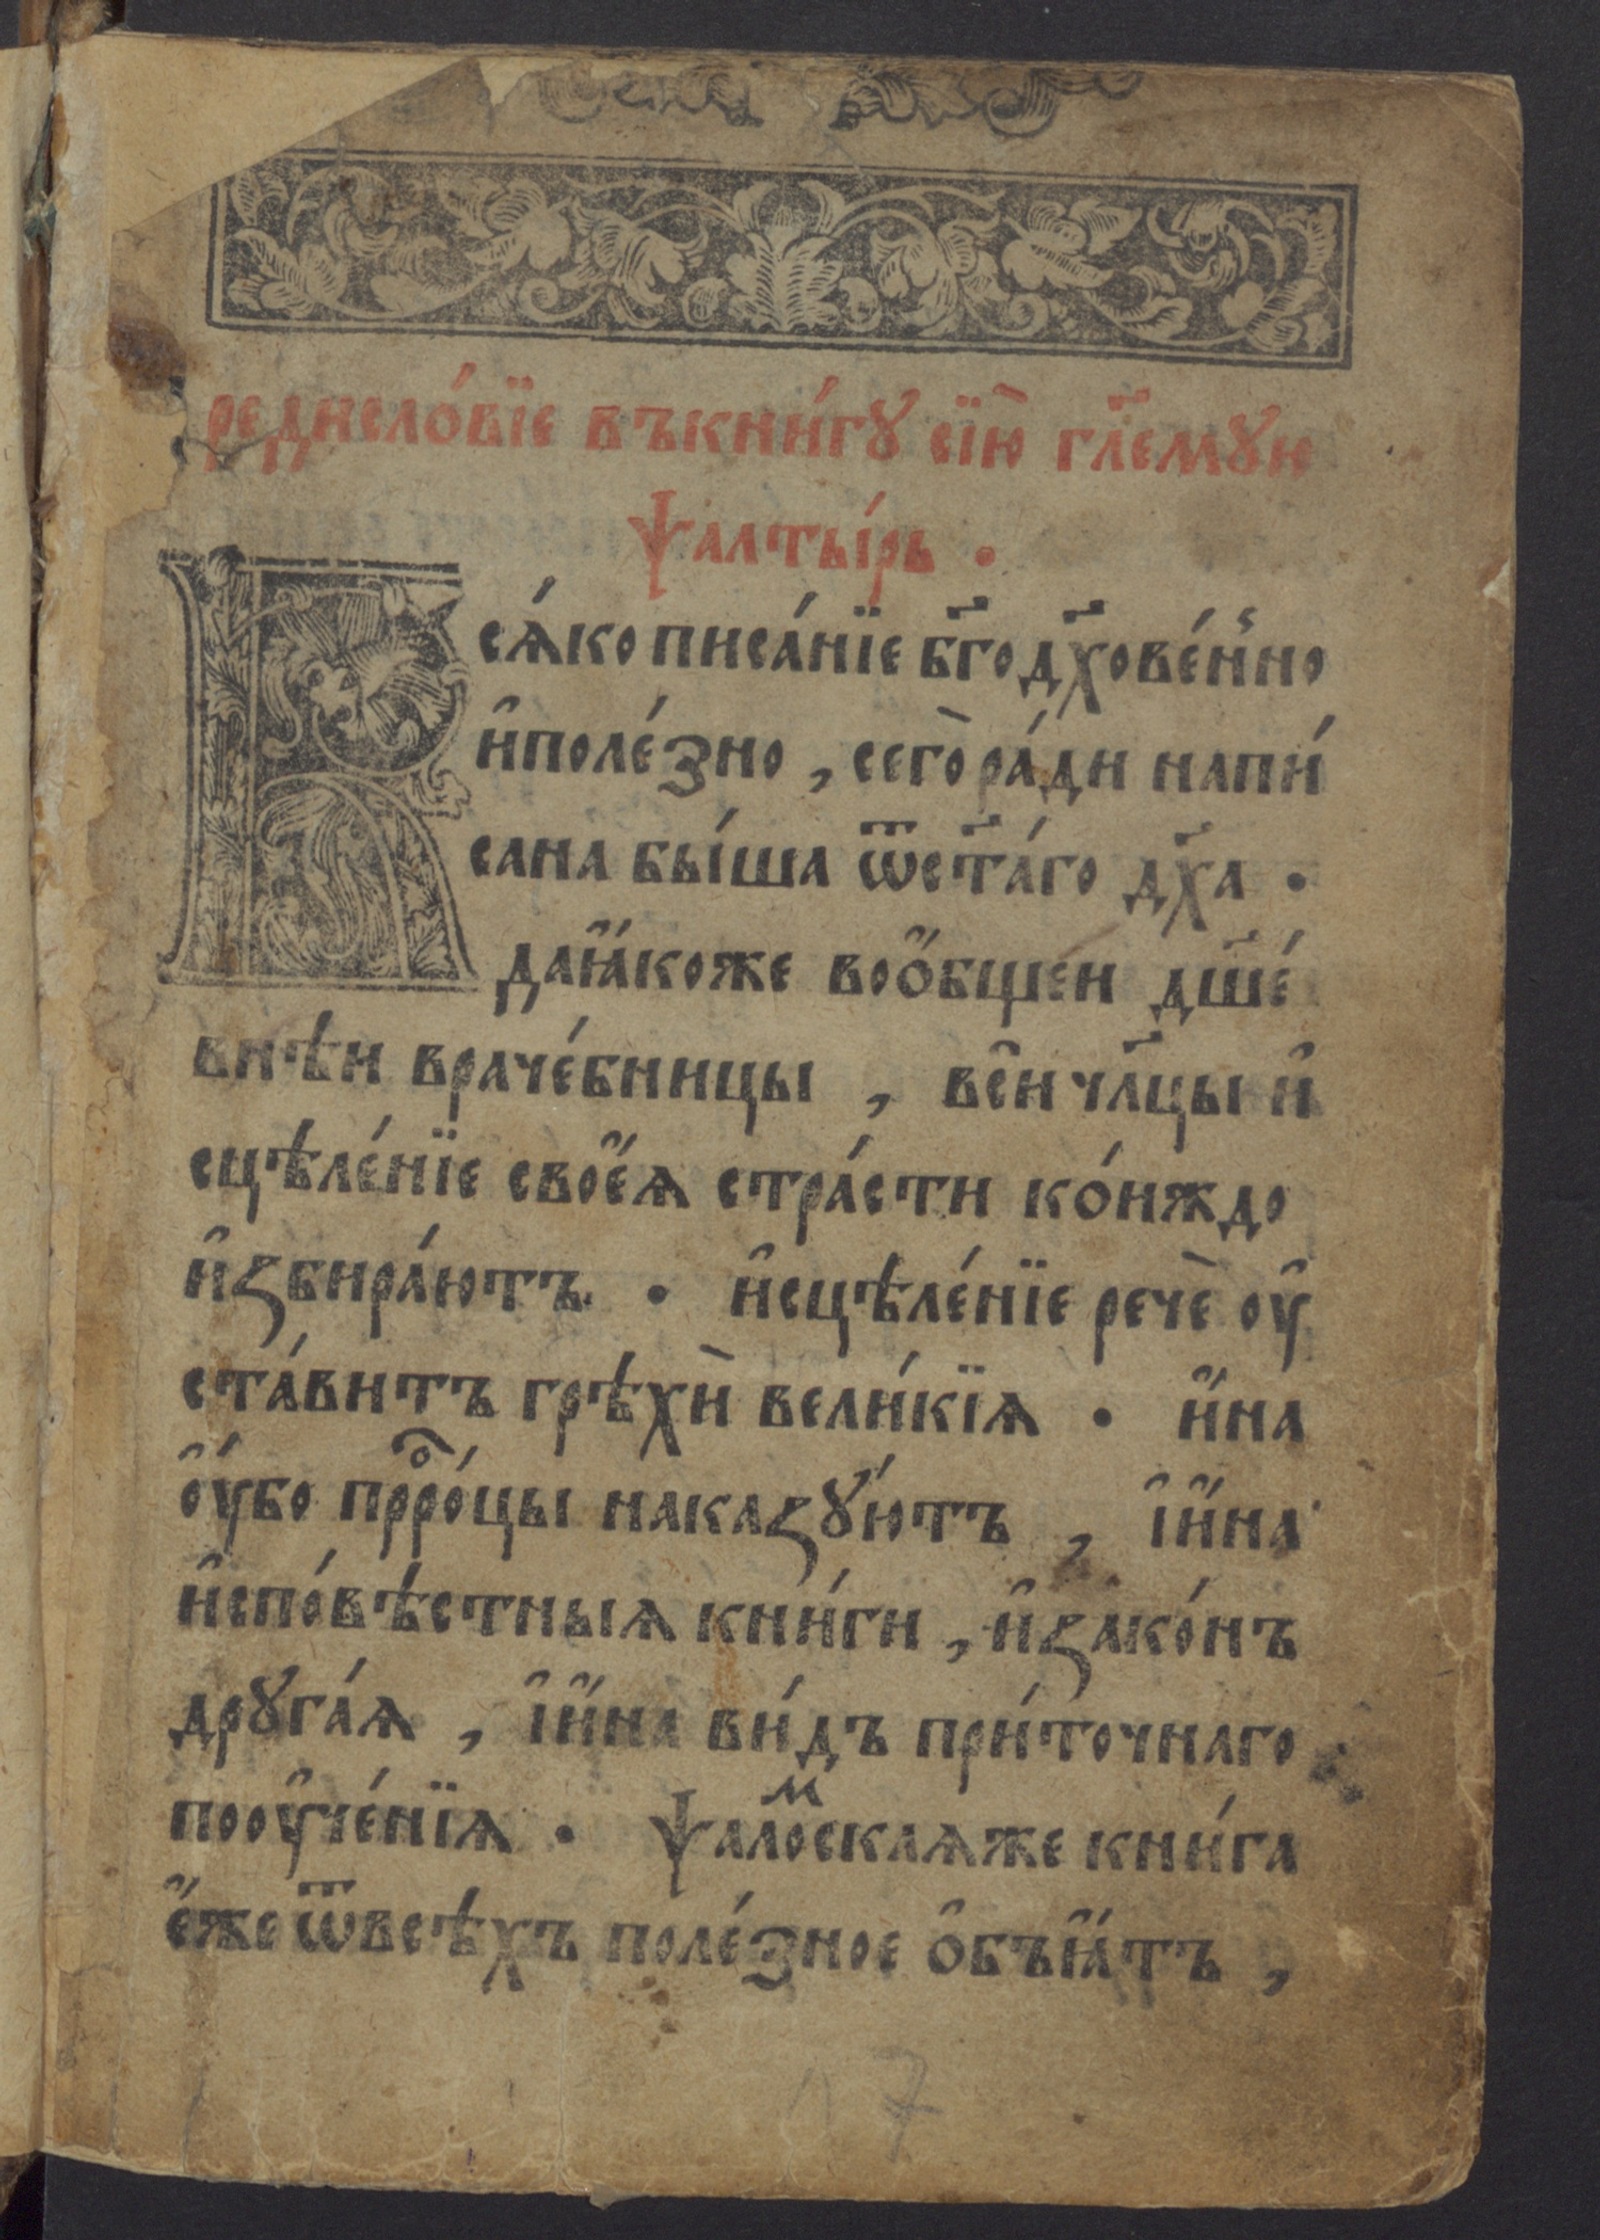 редисло́вїе въкни́гꙋ сїю̀ гл҃емꙋю
ѱалты́рь .
Всѧ́ко писа́нїе бг҃одх҃ове́нно
и҆поле́зно , сего̀ ра́ди напи́
сана бы́ша ѿст҃а́го дх҃а .
даꙗ҆́коже воо҆́бщеи дш҃е́
внѣ́и враче́бницы , вси҆ чл҃цы и҆
сцѣле́нїе свое҆́ѧ стра́сти ко́иждо
и҆ꙁбира́ютъ . и҆сцѣле́нїе речѐ ѹ҆
ста́витъ грѣхѝ вели́кїѧ . и҆́на
ѹ҆́бо прⷪ҇ро́цы накаꙁꙋ́ютъ , і҆и҆́на
и҆спо́вѣстныѧ кни́ги , и҆ꙁако́нъ
дрꙋга́ѧ , і҆и҆́на ви́дъ при́точнаго
поѹ҆че́нїѧ . ѱалⷨо́скаѧже кни́га
е҆́же ѿвсѣ́хъ поле́зное о҆бъꙗ҆́тъ ,
17